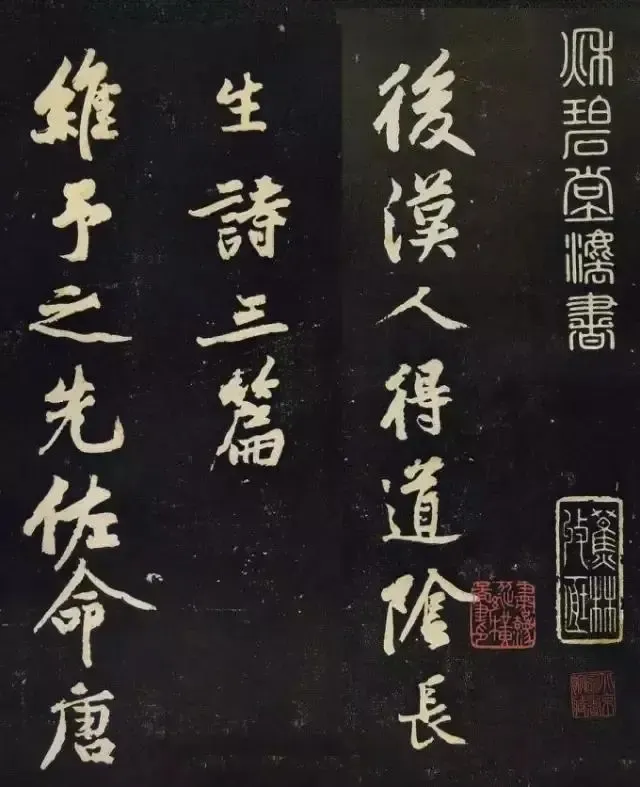 秌碧堂灋書
蕉林
後漢人得道陰長
生詩三篇
維予之先佐命唐